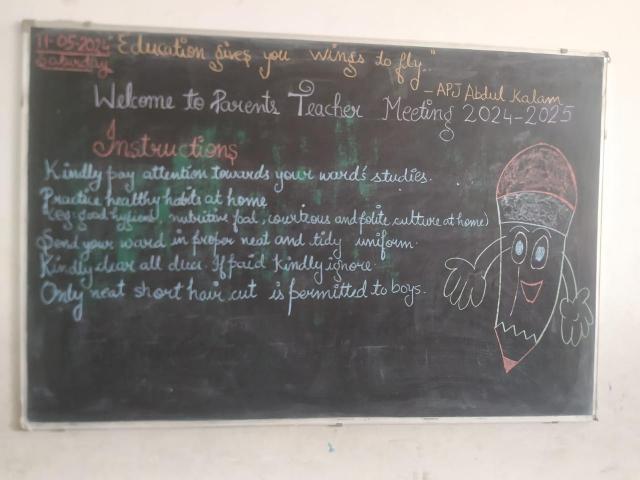 11-05-2024 "Education gives you wings to fly.."
Saturday
- APJ Abdul Kalam
Welcome to Parents Teacher Meeting 2024-2025
Instructions
Kindly pay attention towards your ward's studies.
Practice healthy habits at home
(eg: good hygiene, nutritive food, courteous and polite culture at home)
Send your ward in proper neat and tidy uniform.
Kindly clear all dues. If paid kindly ignore.
Only neat short hair cut is permitted to boys.